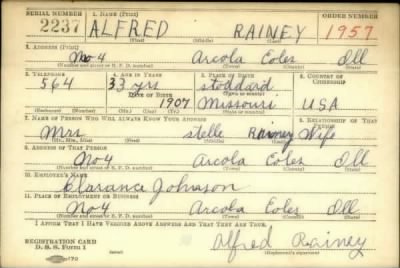 SERIAL NUMBER 1. NAME (Print) ORDER NUMBER
2237 ALFRED RAINEY 1957
(First) (Middle) (Last)
2. ADDRESS (Print)
No 4 Arcola Coles Ill
(Number and street or R. F. D. number) (Town) (County) (State)
3. TELEPHONE 4. AGE IN YEARS 5. PLACE OF BIRTH 6. COUNTRY OF CITIZENSHIP
564 33 yrs stoddard
DATE OF BIRTH (Town or county)
1907 Missouri USA
(Exchange) (Number) (Mo.) (Day) (Yr.) (State or country)
7. NAME OF PERSON WHO WILL ALWAYS KNOW YOUR ADDRESS 8. RELATIONSHIP OF THAT PERSON
Mrs stelle Rainey Wife
(Mr., Mrs., Miss) (First) (Middle) (Last)
9. ADDRESS OF THAT PERSON
No 4 Arcola Coles Ill
(Number and street or R. F. D. number) (Town) (County) (State)
10. EMPLOYER'S NAME
Clarance Johnson
11. PLACE OF EMPLOYMENT OR BUSINESS
No 4 Arcola Coles Ill
(Number and street or R. F. D. number) (Town) (County) (State)
I AFFIRM THAT I HAVE VERIFIED ABOVE ANSWERS AND THAT THEY ARE TRUE.
REGISTRATION CARD
D. S. S. Form 1 Alfred Rainey
(Registrant's signature)